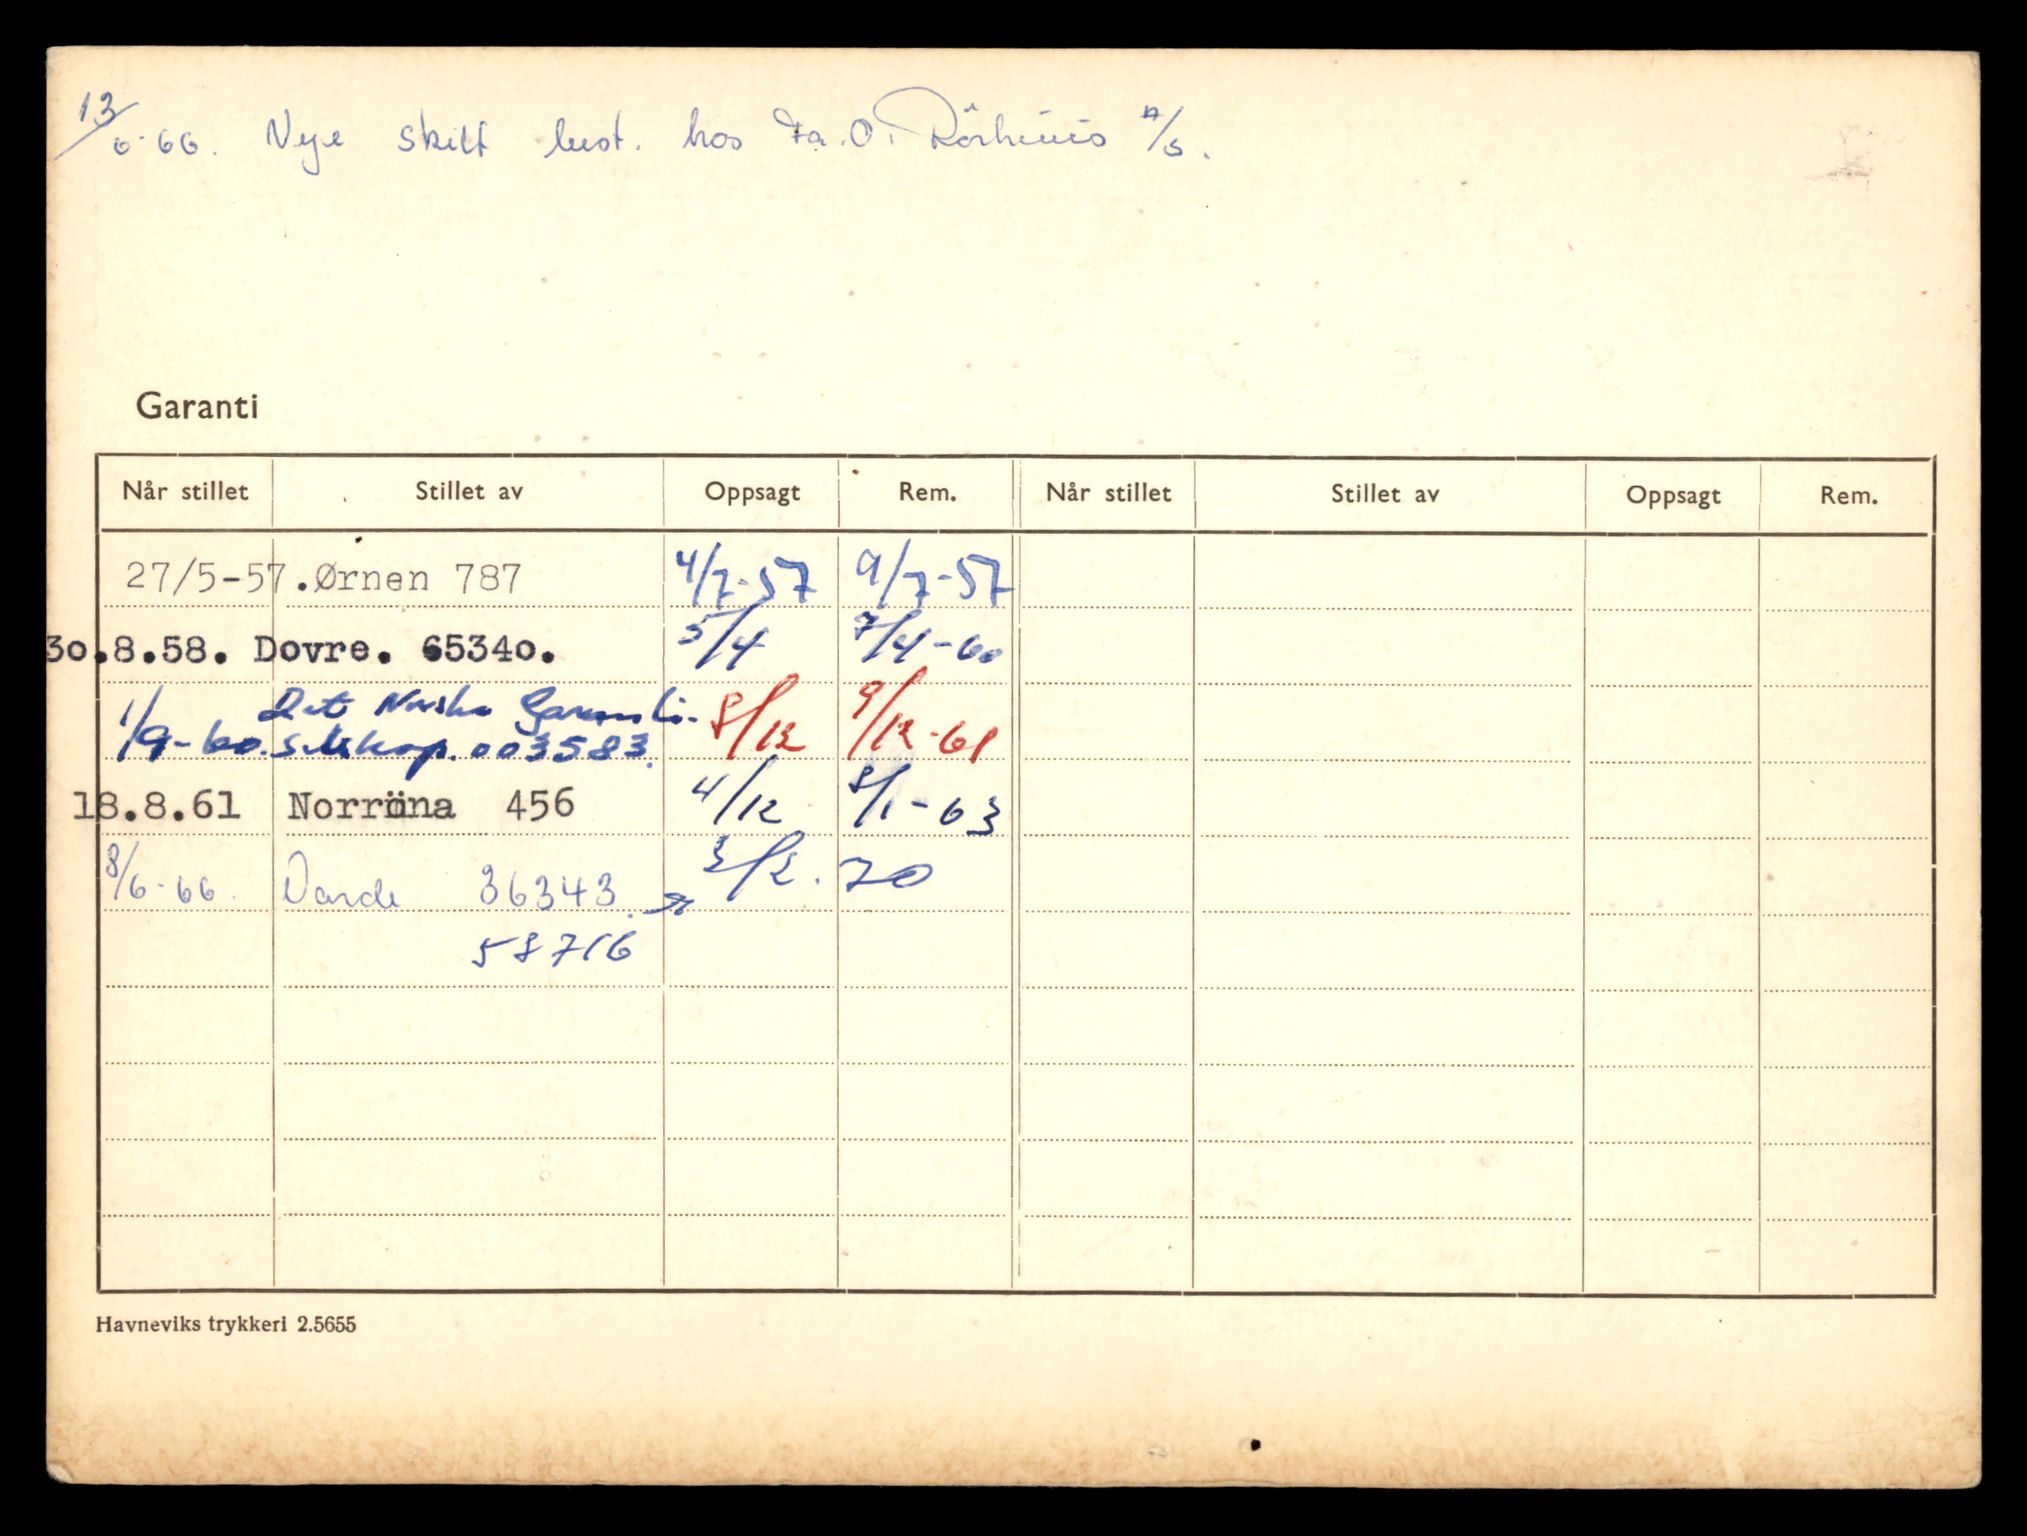 13/6-66. Nye skilt best. hos Fa. O. Rörhuus A/S.
Garanti
Når stillet Stillet av Oppsagt Rem. Når stillet Stillet av Oppsagt Rem.
27/5-57. Ørnen 787 4/7-57 9/7-57
30.8.58. Dovre. 65340. 5/4 7/4-60
Det Norske Garanti-
1/9-60. Selskap. 003583. 8/12 9/12-61
18.8.61 Norröna 456 4/12 8/1-63
8/6-66. Varde 36343. 3/2. 70
58716
Havneviks trykkeri 2.5655